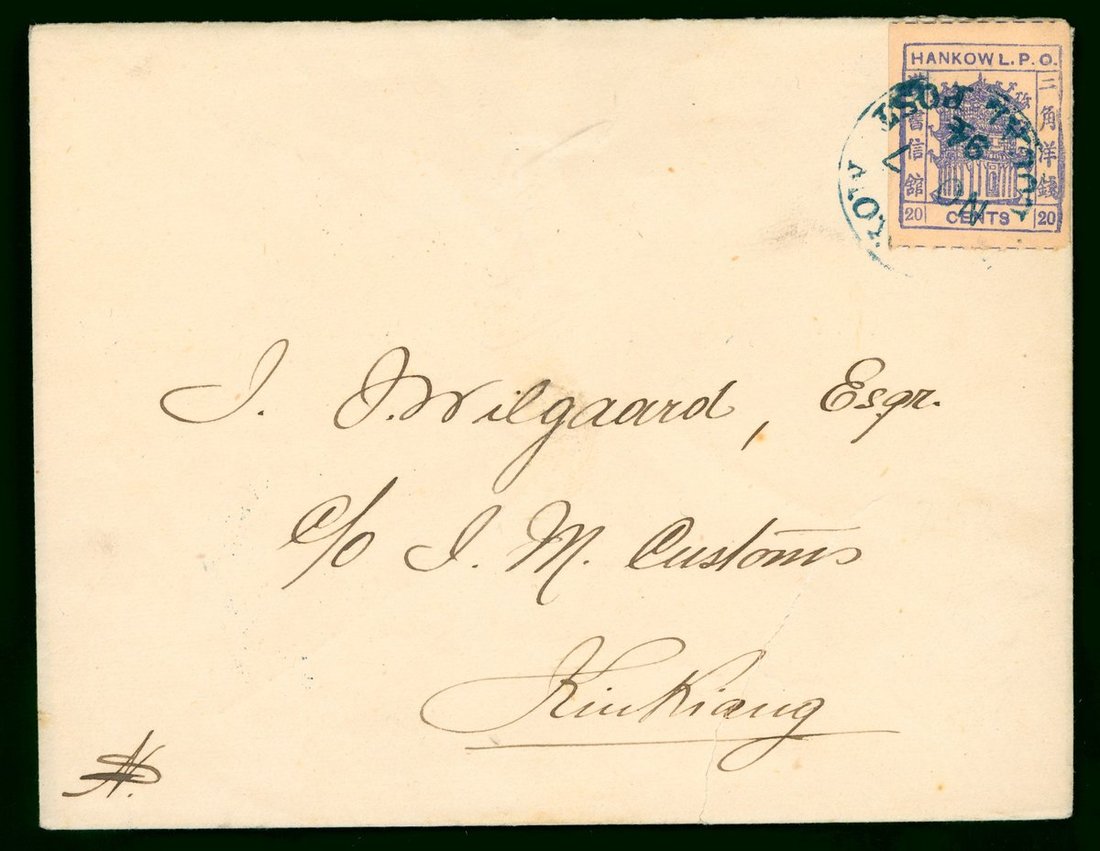 HANKOW L. P. O.
書信館
二角洋錢
20 CENTS 20
LOCAL POST
NO
7
94
J. J. Wilgaard, Esqr.
c/o I. M. Customs
KinKiang